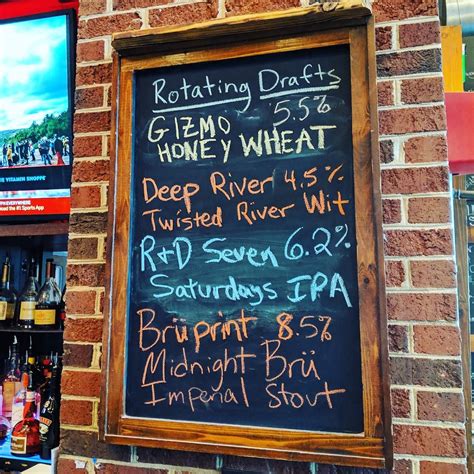 Rotating Drafts
GIZMO 5.5%
HONEY WHEAT
Deep River 4.5%
Twisted River Wit
R+D Seven 6.2%
Saturdays IPA
Brüprint 8.5%
Midnight Brü
Imperial Stout
THE VITAMIN SHOPPE